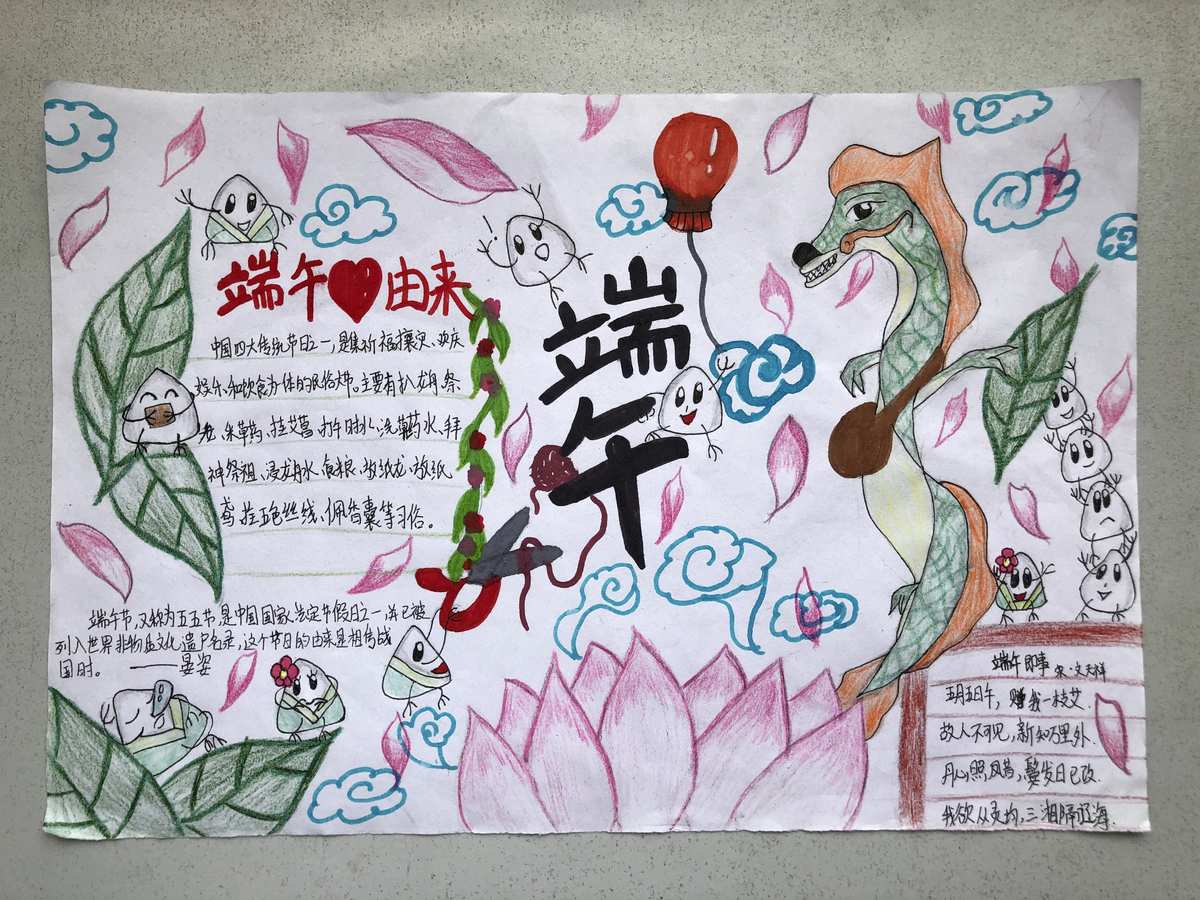 端午 由来
中国四大传统节日之一,是集祈福攘灾、欢庆
娱乐和饮食为一体的民俗大节。主要有扒龙舟、祭
龙、采草药、挂艾草、打午时水、洗草药水、拜
神祭祖、浸龙舟水、食粽、放纸龙、放纸
鸢、拴五色丝线、佩香囊等习俗。
端午节,又称为五五节,是中国国家法定节假日之一,并已被
列入世界非物质文化遗产名录,这个节日的由来是祖传战
国时。——晏姿
端午
端午即事 宋·文天祥
五月五日午,赠我一枝艾.
故人不可见,新知万里外.
丹心照夙昔,鬓发日已改.
我欲从灵均,三湘隔辽海.